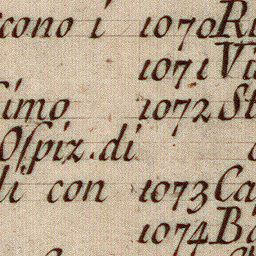 scono i 1070 Ri
1071 Vi
simo 1072 St
Ospiz. di
li con 1073 Ca
1074 Ba